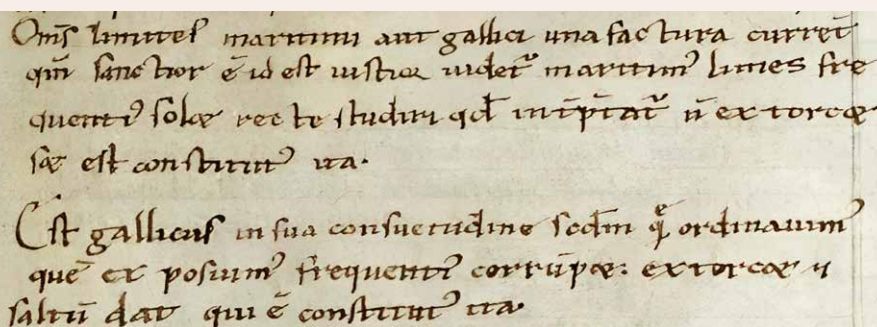 Om̅s limites maritimi aut gallici una factura curren̅t
qm̅ sanctior e̅ id est iustior uidet᷑ maritim᷒ limes fre
quenti᷒ solæ recte studiri qd̅ int̅p̅tat᷑ n̅ extorcæ
sæ est constitut᷒ ita.
Est gallicus in sua consuetudine scd̅m q̅ ordinauim᷒
que̅ ex posuim᷒ frequenti᷒ corru̅pæ: extorcæ n
saltu̅ dat qui e̅ constitut᷒ ita.